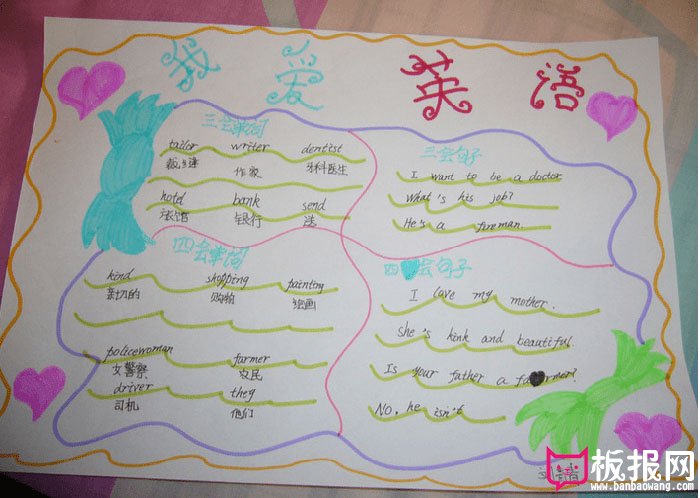 我爱英语
三会单词
tailor writer dentist
裁缝 作家 牙科医生
hotel bank send
旅馆 银行 送
四会单词
kind shopping painting
亲切的 购物 绘画
policewoman farmer
女警察 农民
driver they
司机 他们
三会句子
I want to be a doctor.
What's his job?
He's a fireman.
四会句子
I love my mother.
She's kink and beautiful.
Is your father a farmer?
No, he isn't
板报网
www.banbaowang.com